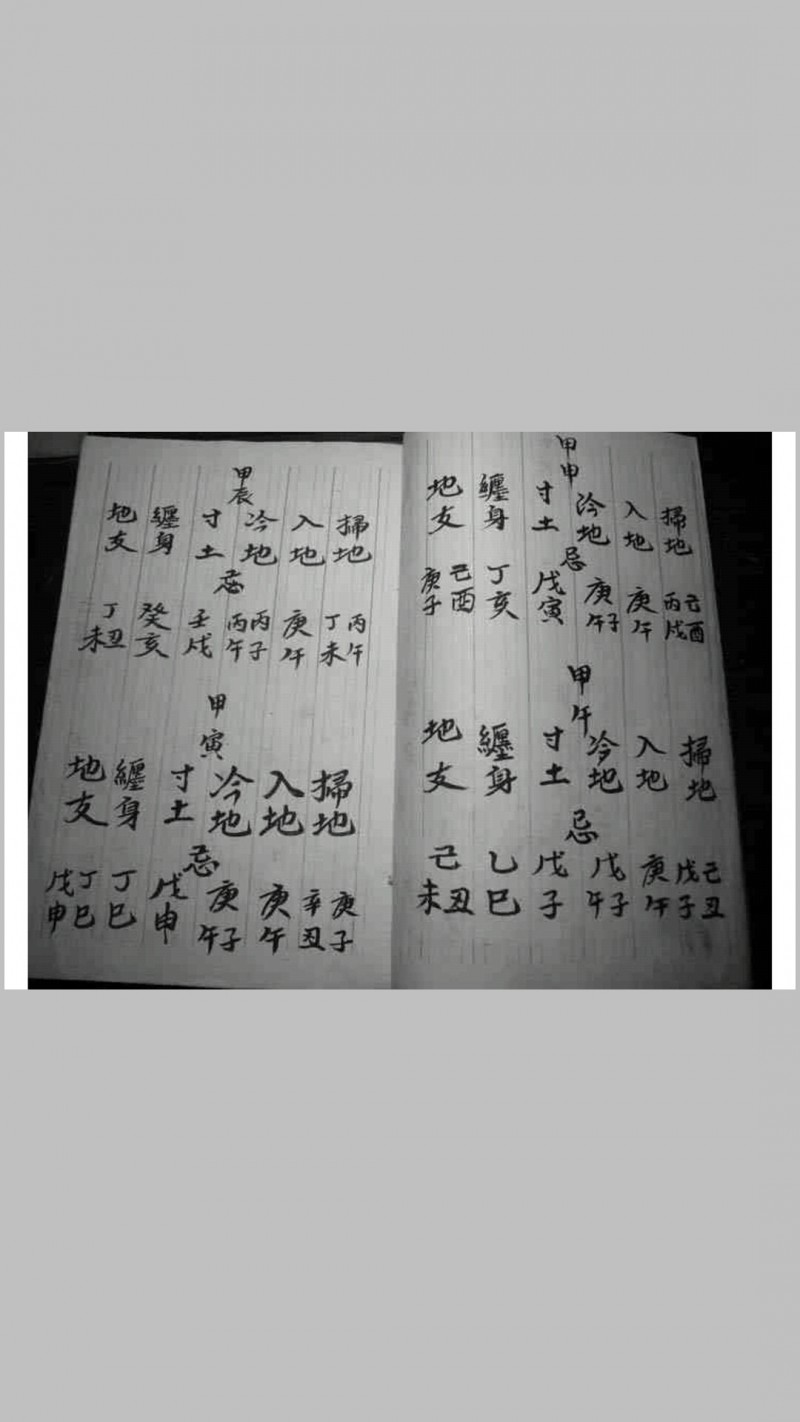 甲申
掃地 入地 冷地 寸土 纏身 地支
忌
己酉 丙戌 庚午 庚午子 戊寅 丁亥 己酉 庚子
甲午
掃地 入地 冷地 寸土 纏身 地支
忌
己丑 戊子 庚午 戊午子 戊子 乙巳 己未丑
甲辰
掃地 入地 冷地 寸土 纏身 地支
忌
丙午 丁未 庚午 丙子 丙午 壬戌 癸亥 丁丑未
甲寅
掃地 入地 冷地 寸土 纏身 地支
忌
庚子 辛丑 庚午 庚午子 戊申 丁巳 丁巳 戊申